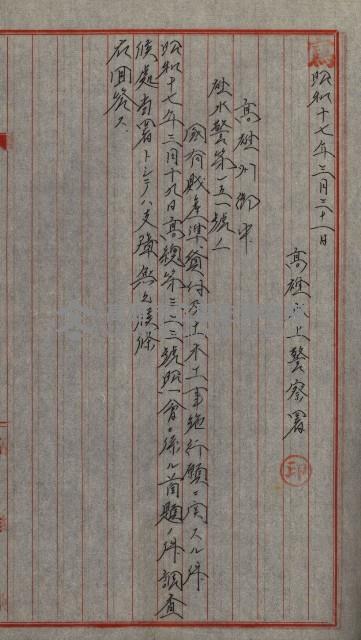 寫
昭和十七年三月三十一日
高雄水上警察署
印
高雄州御中
雄水警第一五一號ノ一
國有財產準貸付及土木工事施行願ニ関スル件
昭和十七年三月十九日高總第三二三號照會ニ係ル首題ノ件調査
候處當署トシテハ支障無之候條
右回答ス